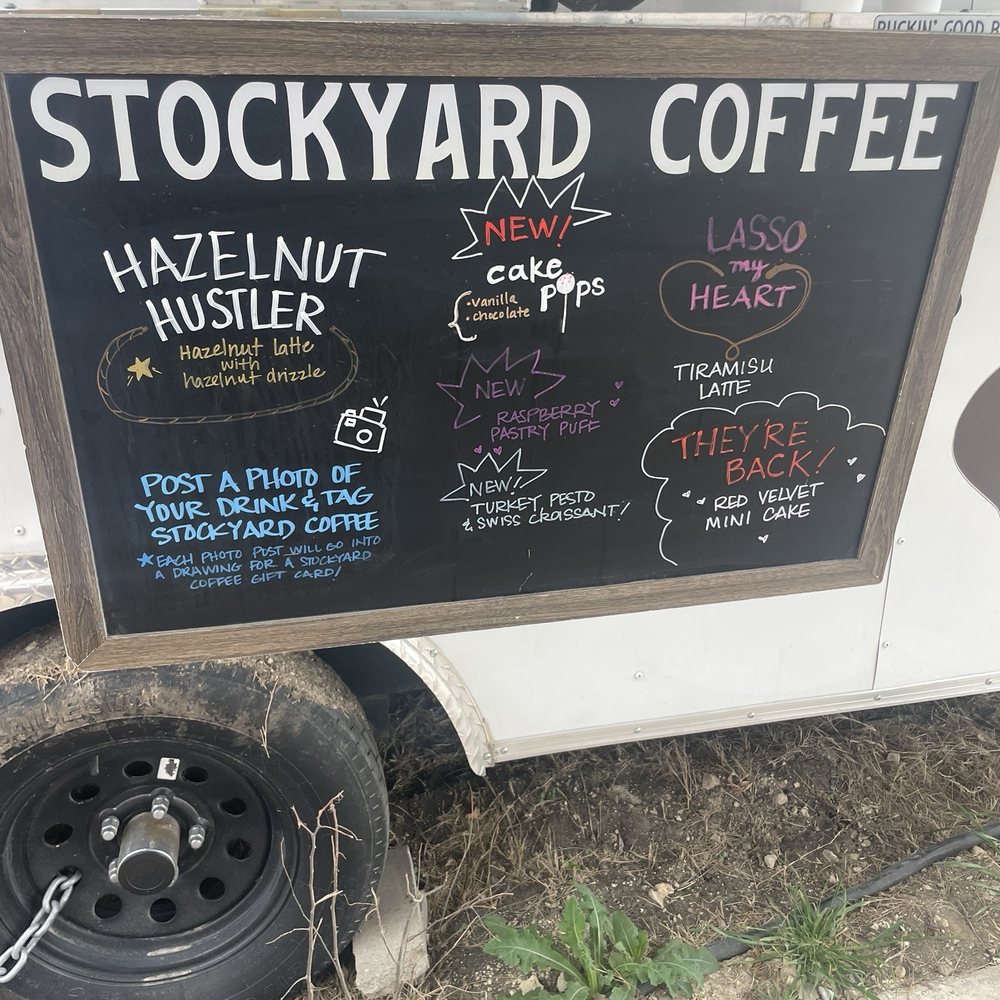 BUCKIN' GOOD
STOCKYARD COFFEE
HAZELNUT
HUSTLER
Hazelnut latte
with
hazelnut drizzle
POST A PHOTO OF
YOUR DRINK & TAG
STOCKYARD COFFEE
*EACH PHOTO POST WILL GO INTO
A DRAWING FOR A STOCKYARD
COFFEE GIFT CARD!
NEW!
cake
pops
• vanilla
• chocolate
NEW
RASPBERRY
PASTRY PUFF
NEW!
TURKEY PESTO
& SWISS CROISSANT!
LASSO
my
HEART
TIRAMISU
LATTE
THEY'RE
BACK!
RED VELVET
MINI CAKE